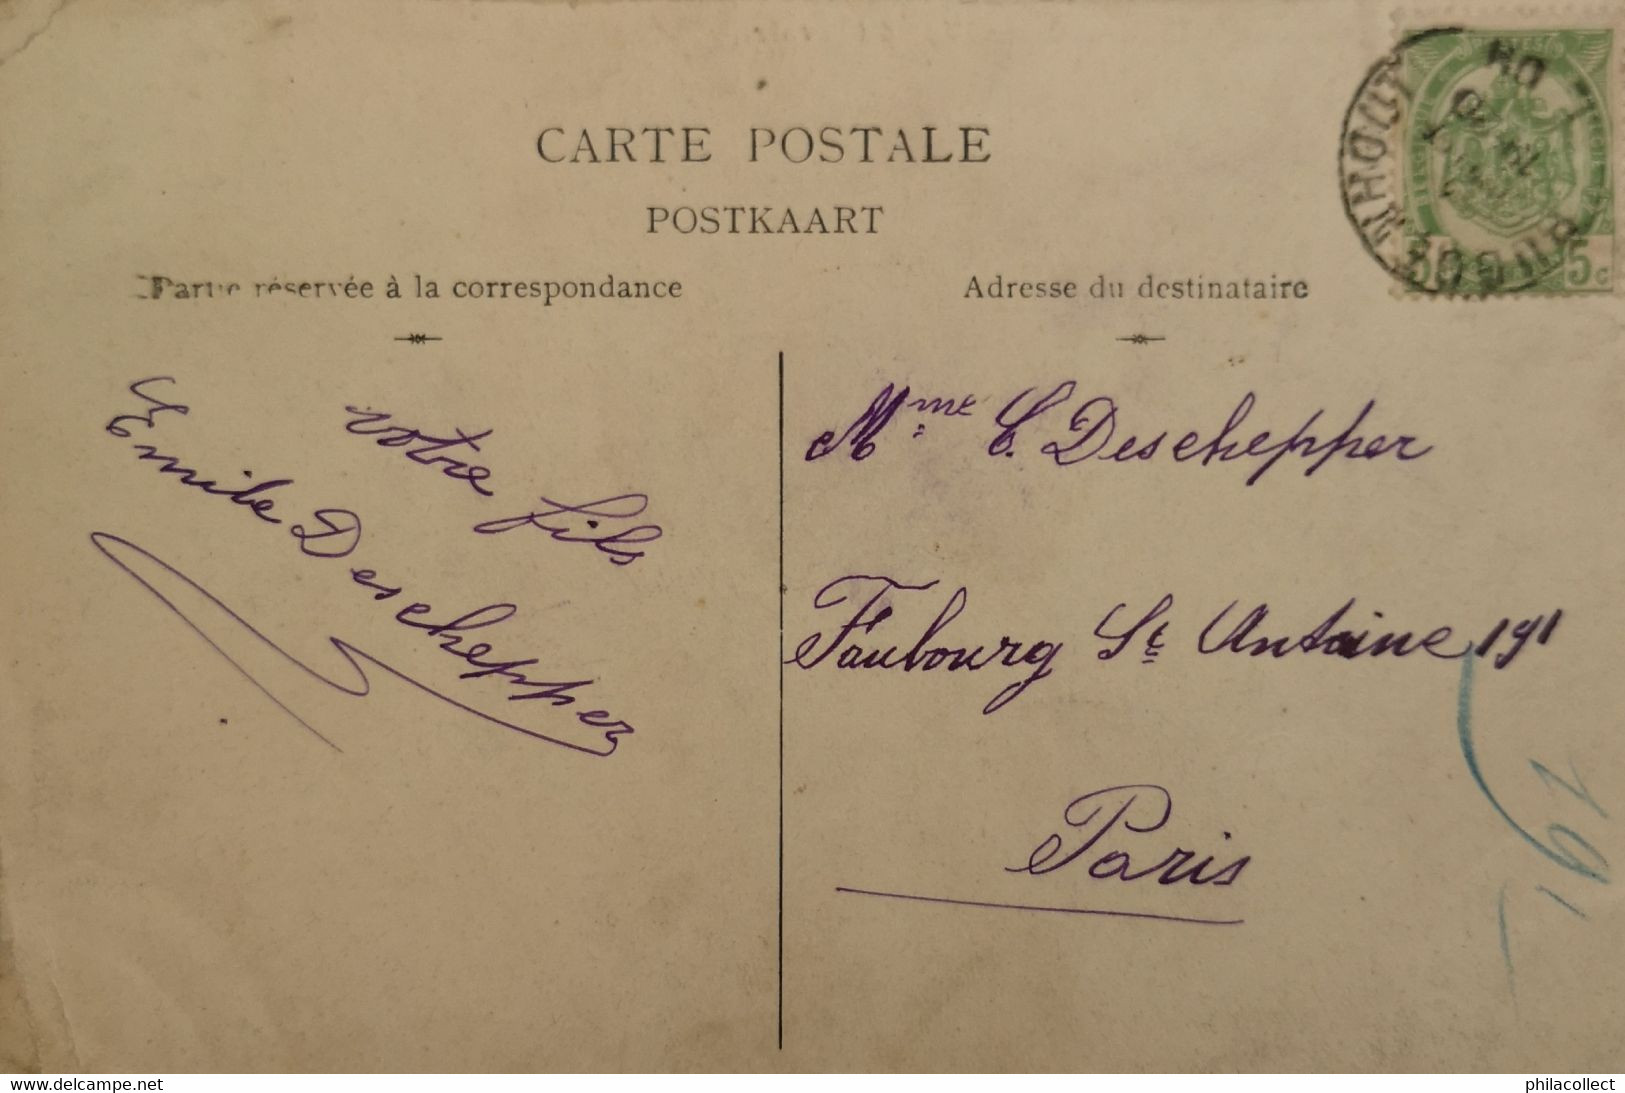 CARTE POSTALE
POSTKAART
Partie réservée à la correspondance
Adresse du destinataire
votre fils
Emile Deschepper
Mme C. Deschepper
Faubourg St Antoine 191
Paris
191
5c
philacollect